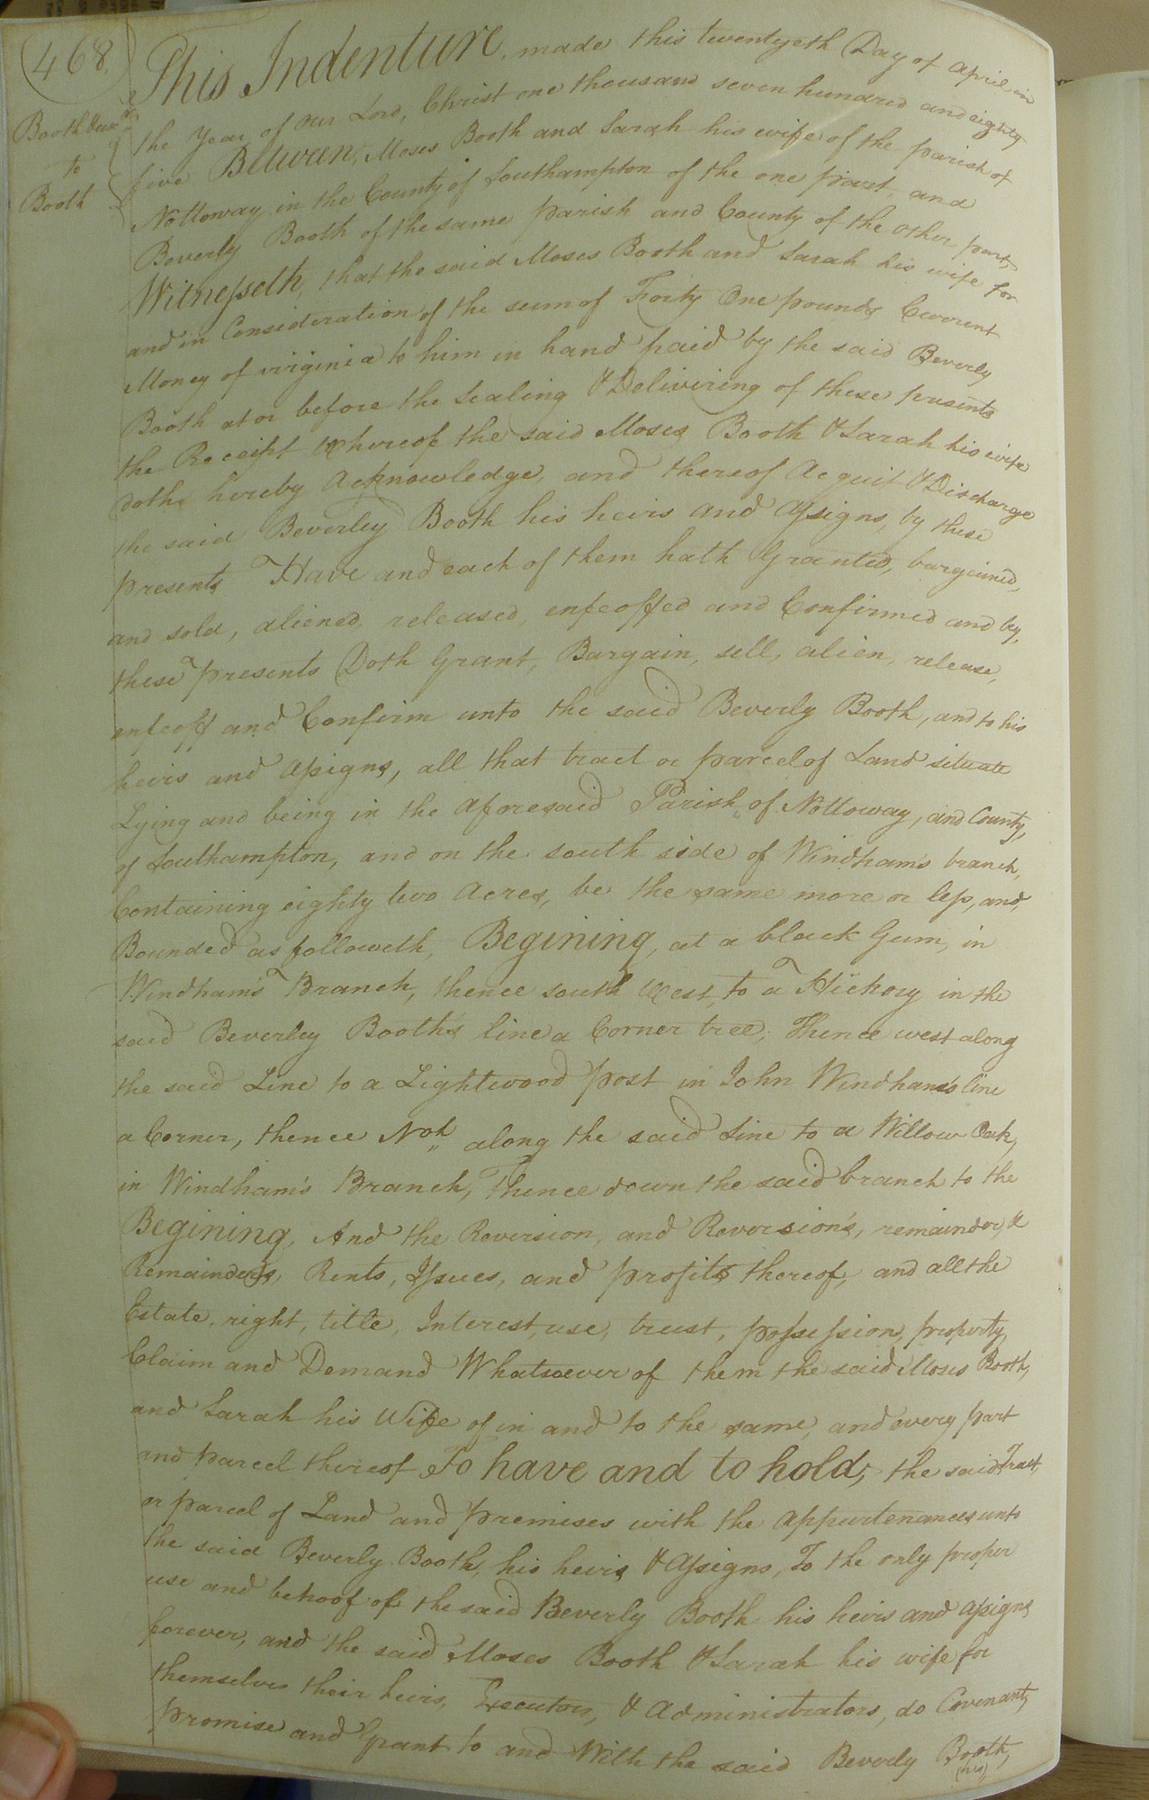 468.
Booth &ux.r
to
Booth
This Indenture, made this twentyeth Day of April in
the Year of our Lord, Christ one thousand seven hundred and eighty
five Between, Moses Booth and Sarah his wife of the parish of
Nottoway in the County of Southampton of the one part, and
Beverly Booth of the same parish and County of the other part,
Witnesseth, that the said Moses Booth and Sarah his wife for
and in Consideration of the sum of Forty One pounds Current
Money of virginia to him in hand paid by the said Beverly
Booth at or before the Sealing & Delivering of these presents
the Receipt whereof the said Moses Booth & Sarah his wife
doth hereby Acknowledge, and thereof Acquit & Discharge
the said Beverley Booth his heirs and Assigns, by these
presents Have and each of them hath Granted, bargained,
and sold, aliened, released, enfeoffed and Confirmed and by,
these presents Doth Grant, Bargain, sell, alien, release,
enfeoff and Confirm unto the said Beverly Booth, and to his
heirs and Assigns, all that tract or parcel of Land situate
Lying and being in the Aforesaid Parish of Nottoway, and County,
of Southampton, and on the south side of Windham's branch,
Containing eighty two Acres, be the same more or less, and,
Bounded as followeth, Begining, at a black Gum, in
Windham's Branch, thence south West, to a Hickory in the
said Beverley Booth's line a Corner tree, Thence west along
the said Line to a Lightwood post in John Windham's line
a Corner, thence Noh along the said Line to a Willow Oak,
in Windham's Branch, Thence down the said branch to the
Begining, And the Reversion, and Reversion's, remainder, &
Remainders, Rents, Issues, and profits thereof, and all the
Estate, right, title, Interest, use, trust, possession, property,
Claim and Demand Whatsoever of them the said Moses Booth,
and Sarah his Wife of in and to the same, and every part
and parcel thereof To have and to hold, the said Tract,
or parcel of Land and premises with the Appurtenances unto
the said Beverly Booth, his heirs & Assigns, To the only proper
use and behoof of the said Beverly Booth his heirs and Assigns
forever, and the said Moses Booth & Sarah his wife for
themselves their heirs, Executors, & Administrators, do Covenant,
promise and Grant to and With the said Beverly Booth,
(his)